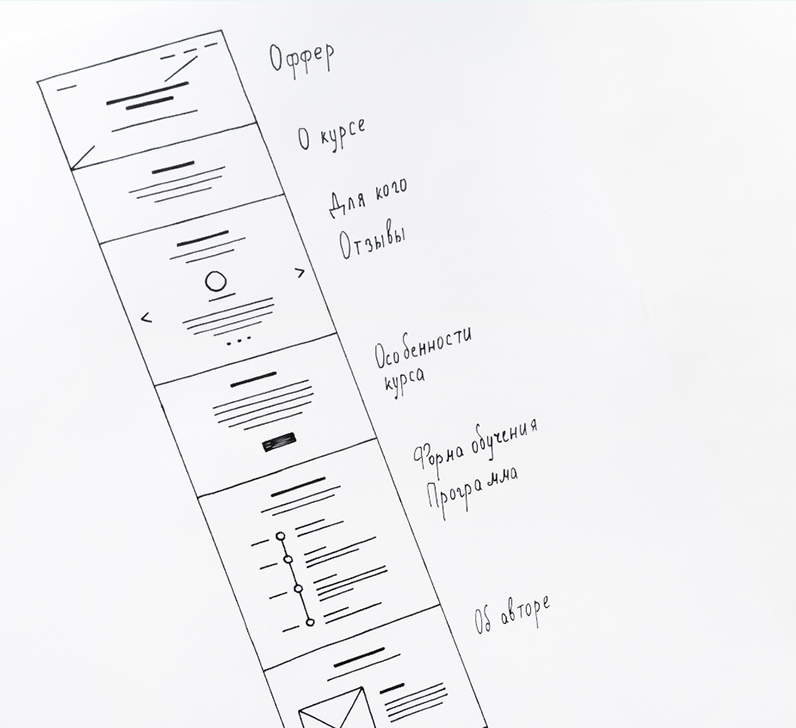 Оффер
О курсе
Для кого
Отзывы
Особенности
курса
Форма обучения
Программа
Об авторе